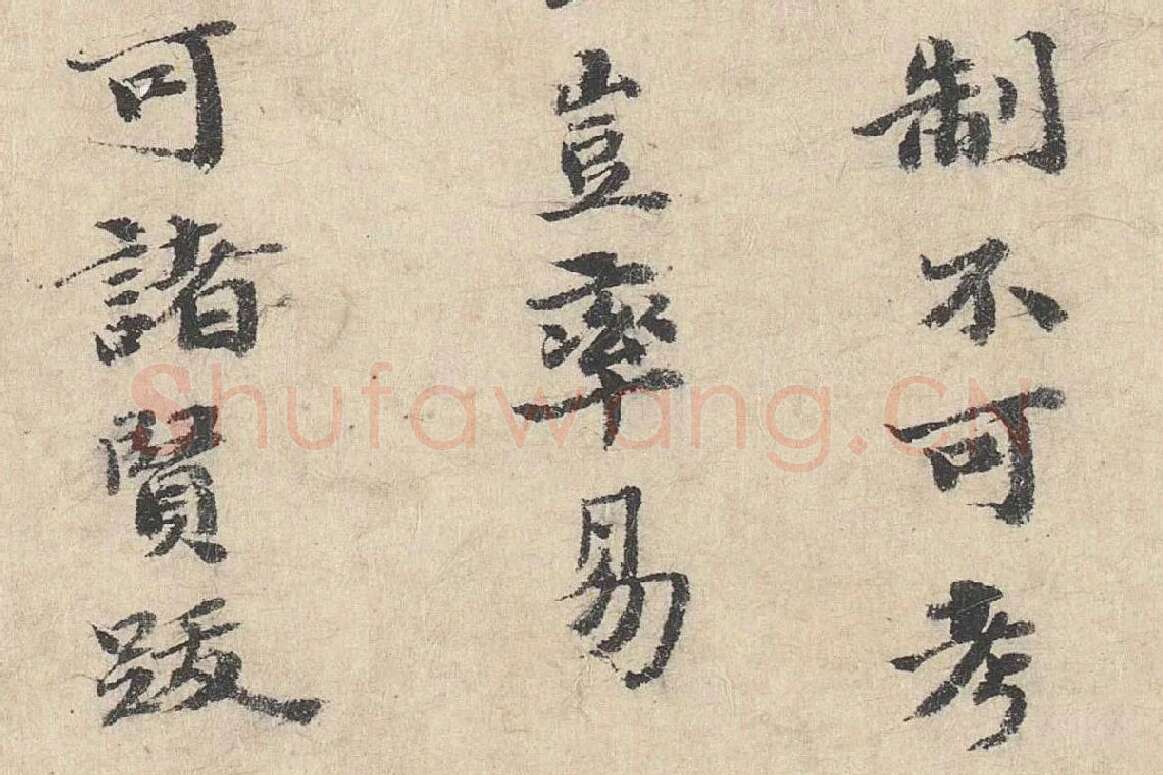 制不可考
豈率易
可諸賢跋
Shufawang.CN